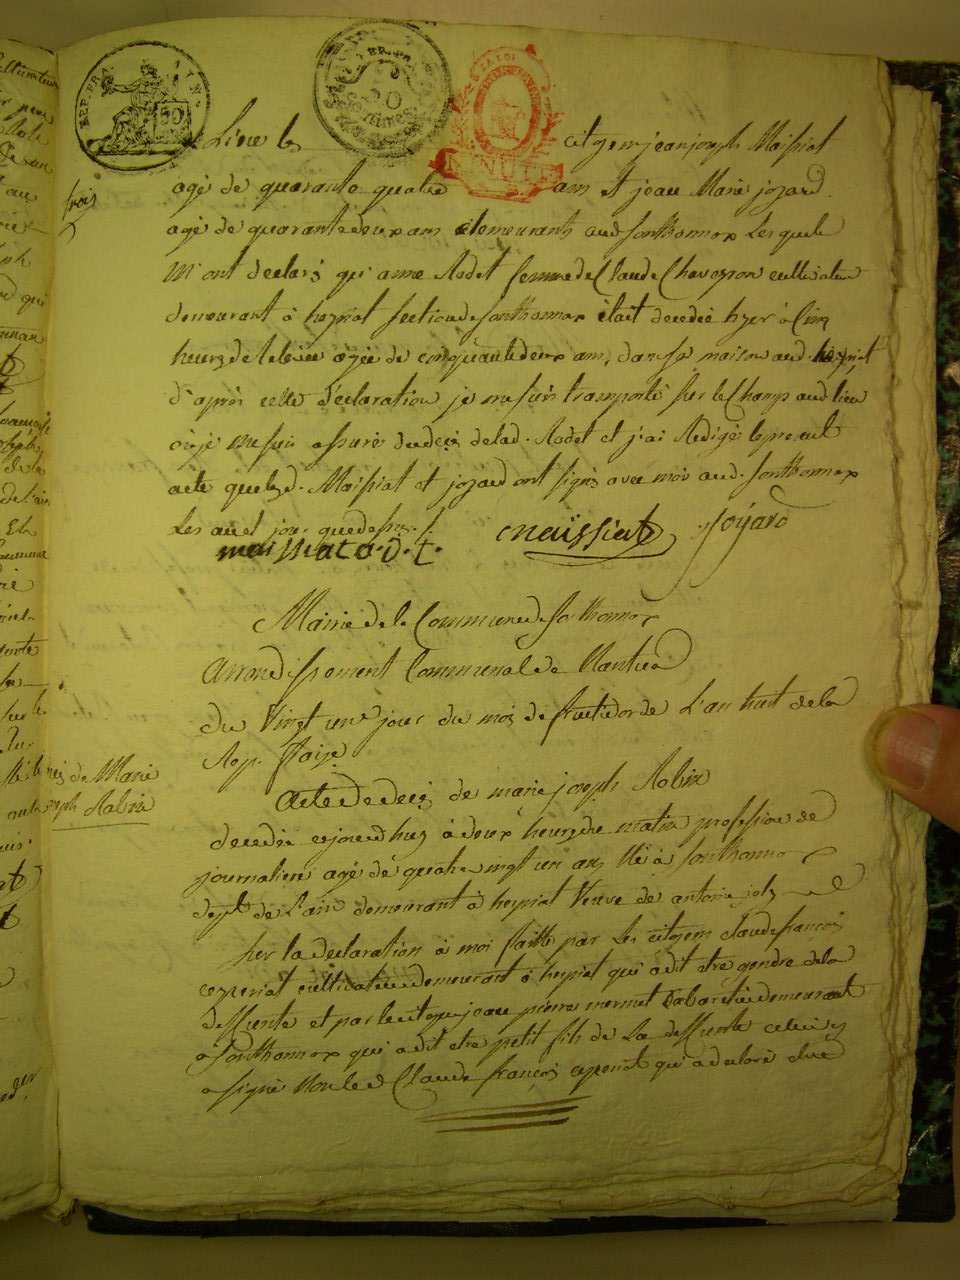 REP. FRA. AIN.
50
LA LOI
citoyen jean joseph Maissiat
agé de quarante quatre ans et jean Marie jozard
trois
agé de quarante deux ans demeurants aud. sonthonnax Les quels
M'ont declaré qu'anne Rodet femme de Claude Chavesson cultivateur
demeurant à heyriat section de sonthonnax était decedée hyer à Cinq
heures de agée de cinquante deux ans, dans sa maison aud. heyriat
d'après cette déclaration je me suis transporté sur le Champ aud. lieu
où je me suis assuré du decès de lad. Rodet et j'ai Redigé le present
acte que lesd. Maissiat et jozard ont signé avec moi aud. sonthonnax
Les an et jour que dessus
maissiat joyard
Mairie de la Commune de sonthonnax
Arrondissement Communal de Nantua
du Vingt un jour du mois de fructidor de L'an huit de la
Rep. 
Acte de decès de marie joseph Robin
de Marie
joseph Robin
decedée aujourd'huy à deux heures du matin profession de
journaliere agé de quatre vingt un ans né à sonthonnax
dept. de L'ain demeurant à heyriat Veuve de antoine
sur la declaration à moi faitte par Les citoyens claude françois
cultivateur demeurant à heyriat qui a dit etre gendre de la
deffunte et par le citoyen jean pierre mermet Cabaretier demeurant
à sonthonnax qui a dit etre petit fils de La deffunte celui cy
a signé Non led. Claude françois qui a declaré